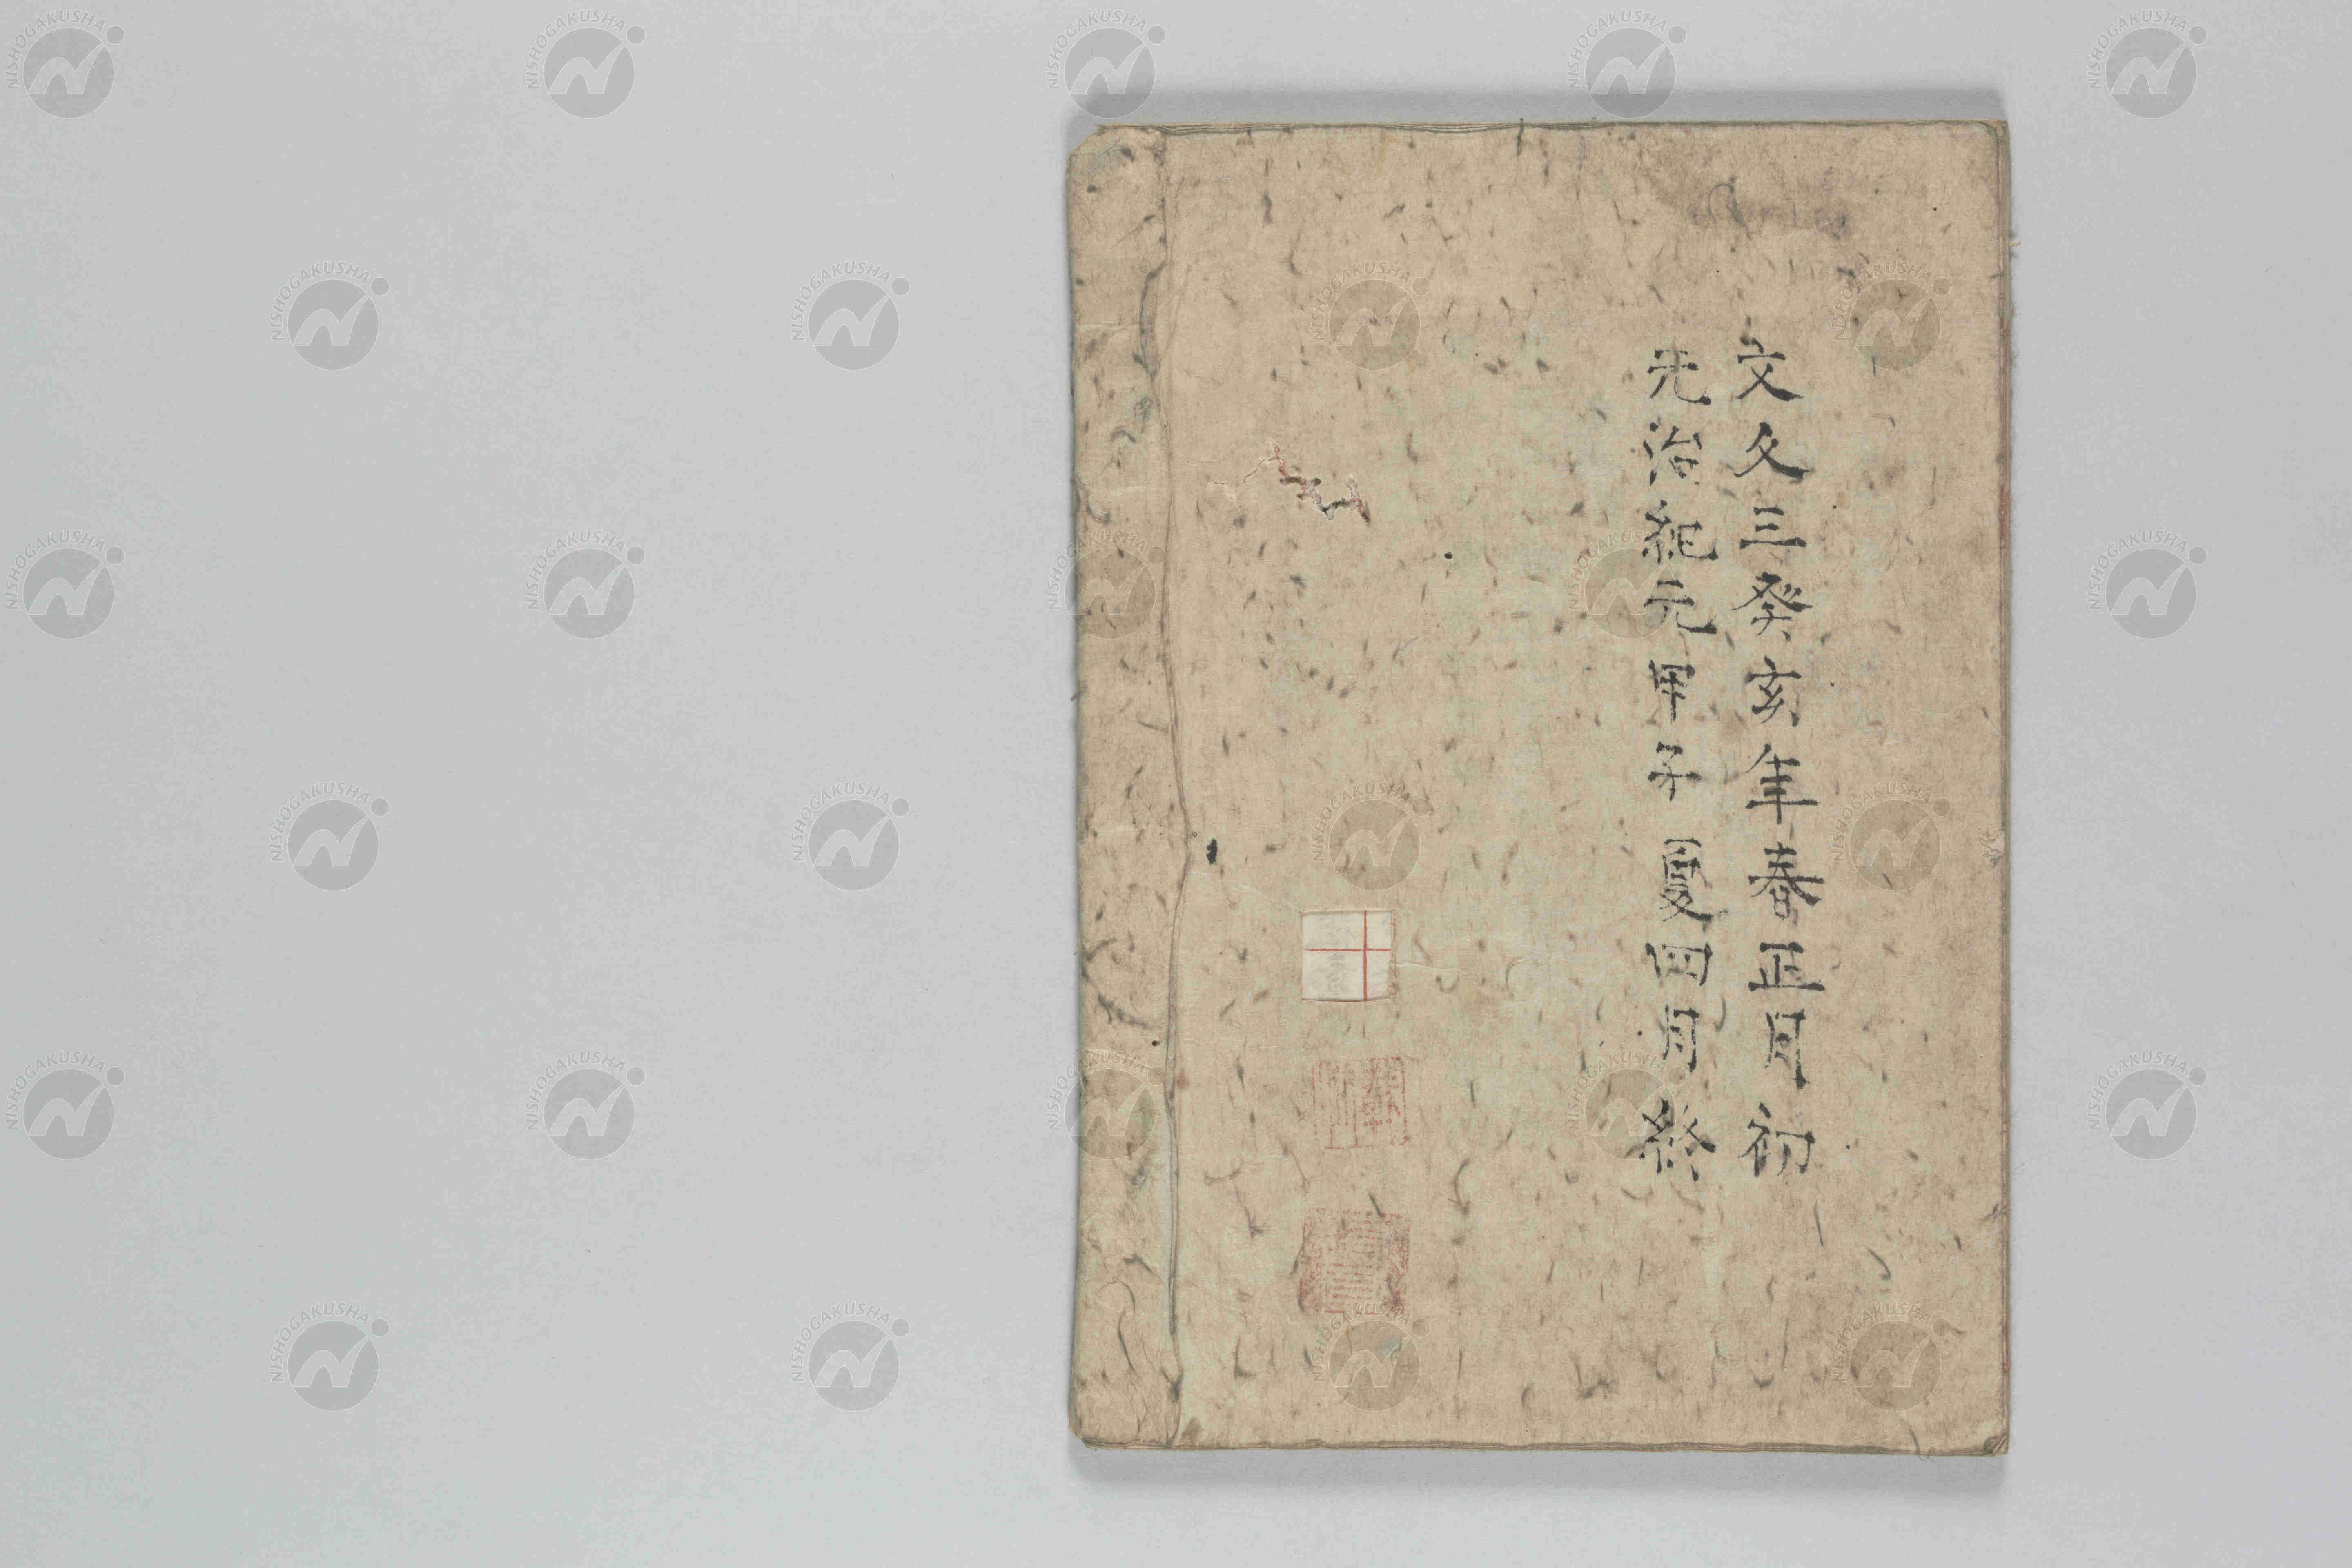 文久三癸亥年春正月初
元治紀元甲子夏四月終
NISHOGAKUSHA